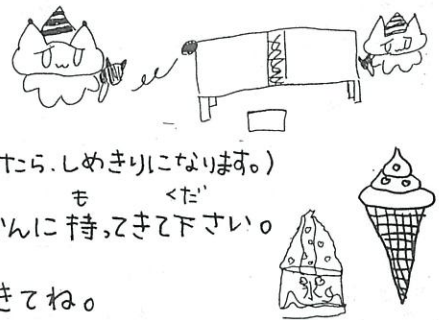 たら、しめきりになります。)
も くだ
んに持ってきて下さい。
きてね。